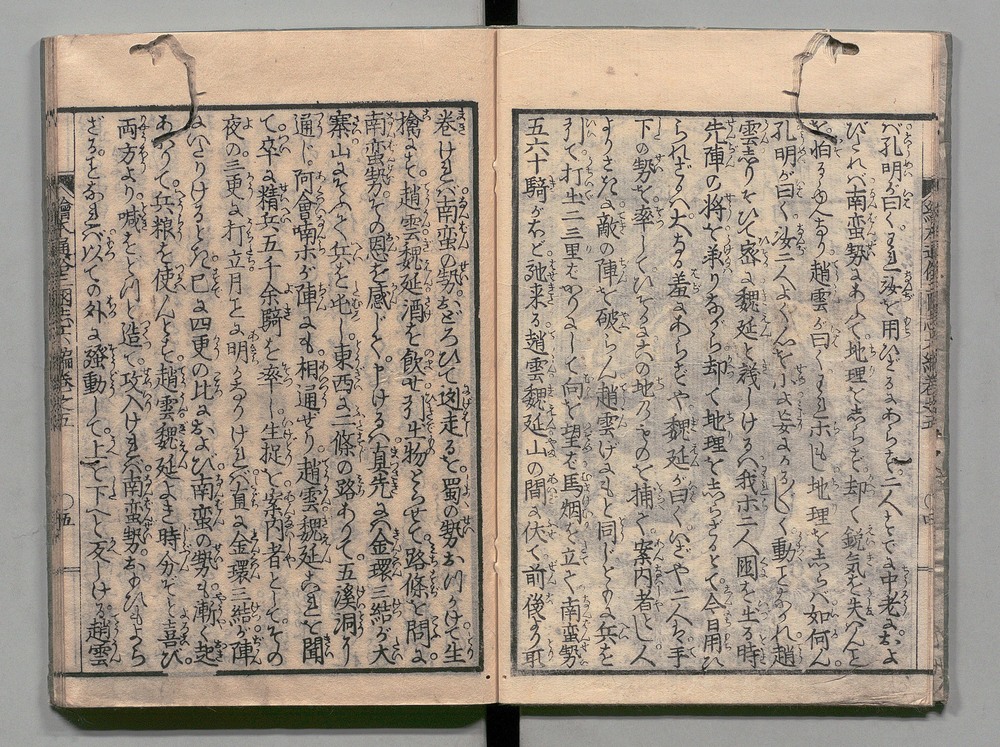 バ孔明が曰くわれ汝を用ひざるにあらず二人ともに中老におよ
びたれバ南蛮勢にあふて地理をしらず却て鋭気を失ハんと
を怕るゝ也趙雲が曰くわれホもし地理をしらバ如何ん
孔明が曰く汝二人よく心を小にし妄にかろ〴〵しく動ことなかれ趙
雲怒りをひて密に魏延と義しけるハ我ホ二人国を出る時
先陣の将を承りながら却て地理を志らざるとて今日用ひ
られざるハ大なる羞にあらずや魏延が曰くいざや二人が手
下の勢を率しひそかに此の地のものを捕へ案内者とし人
よりさきに敵の陣を破らん趙雲げにもと同じともに兵を
引て打出二三里ばかりにして向を望ば馬烟を立て南蛮勢
五六十騎がほど馳来る趙雲魏延山の間に伏て前後より取
巻けれバ南蛮の勢おどろひて迯走るを蜀の勢おつかけて生
擒にして趙雲魏延酒を飲せ引出物とらせて路條を問に
南蛮勢その恩を感じて上けるハ真先ハ金環三結が大
寨山にそふて兵を屯し東西に二條の路あつて五溪洞より
通じ阿會喃ホが陣にも相通ぜり趙雲魏延これを聞
て卒に精兵五千余騎を率し生捉を案内者としてその
夜の三更に打立月とに明になりけれバ直に金環三結が陣
にいたりけるときに已に四更の比および南蛮の勢も漸く起
あがりて兵粮を使んとす趙雲魏延よき時分ぞと喜び
両方より喊をどつと造て攻入けれバ南蛮勢おもひもよら
ざることなれバ以ての外に騒動して上を下へと反しける趙雲